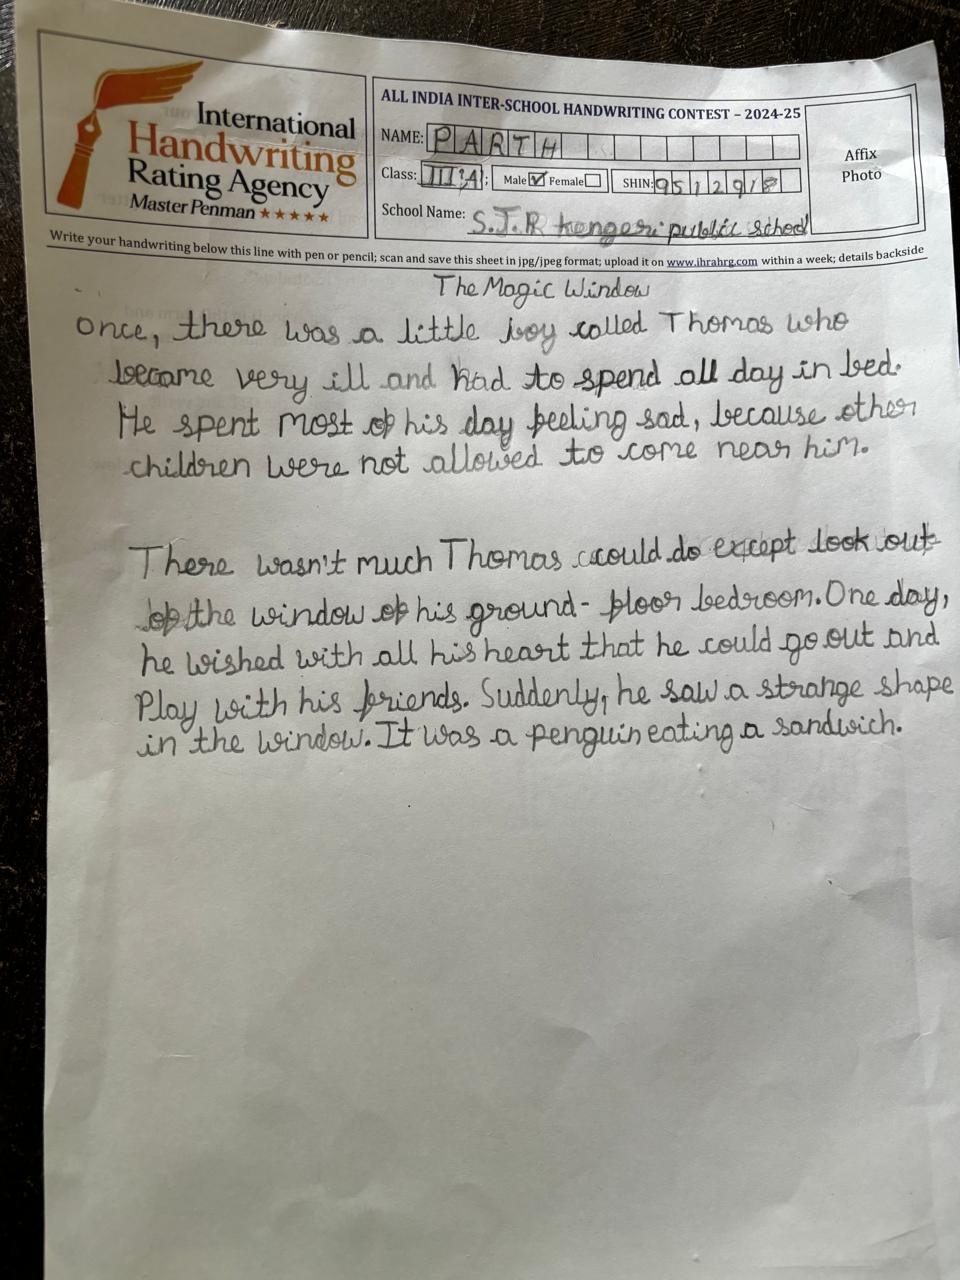 International
Handwriting
Rating Agency
Master Penman ★★★★★
ALL INDIA INTER-SCHOOL HANDWRITING CONTEST – 2024-25
NAME: PARTH
Class: III'A'; Male ☑ Female ☐ SHIN: 9512918
School Name: S.J.R kengeri public school
Affix
Photo
Write your handwriting below this line with pen or pencil; scan and save this sheet in jpg/jpeg format; upload it on www.ihrahrg.com within a week; details backside
The Magic Window
Once, there was a little boy called Thomas who
became very ill and had to spend all day in bed.
He spent most of his day feeling sad, because other
children were not allowed to come near him.
There wasn't much Thomas could do except look out
of the window of his ground-floor bedroom. One day,
he wished with all his heart that he could go out and
Play with his friends. Suddenly, he saw a strange shape
in the window. It was a penguin eating a sandwich.